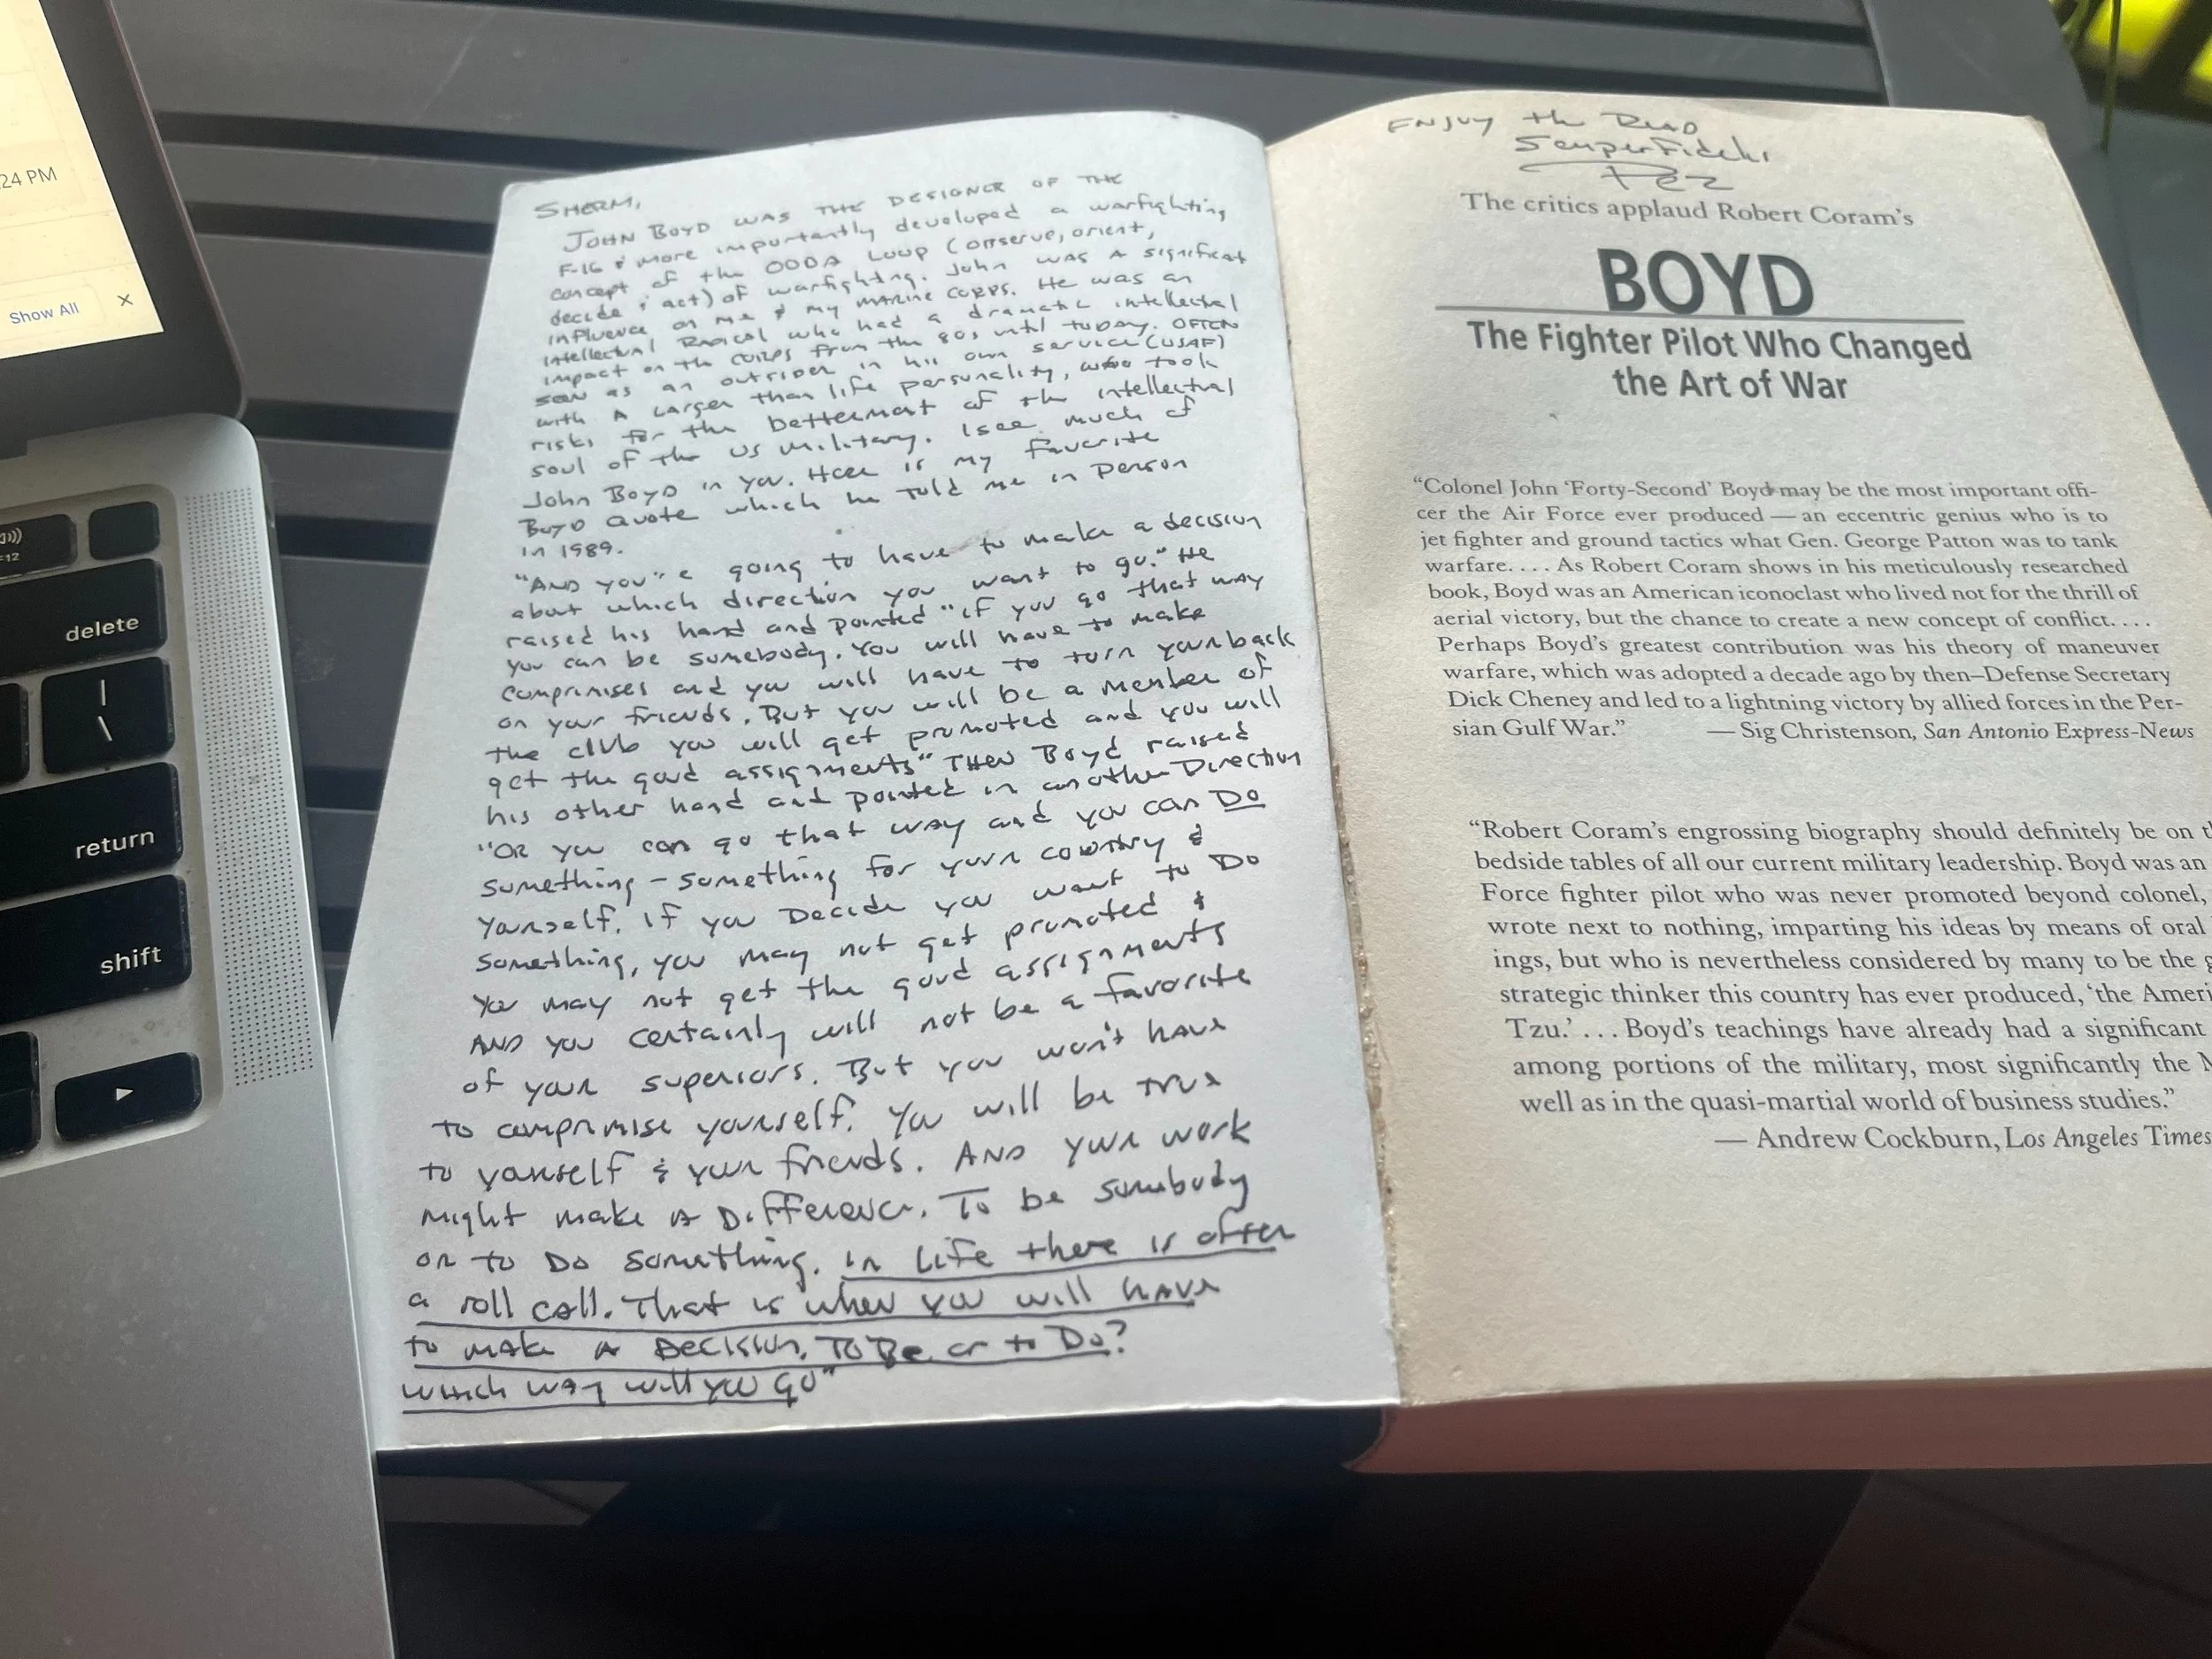 24 PM
Show All
×
F12
delete
|
\
return
shift
SHERM,
JOHN BOYD WAS THE DESIGNER OF THE
F-16 & more importantly developed a warfighting
concept of the OODA LOOP (observe, orient,
decide & act) of warfighting. John WAS A significat
influence on me & my MARINE CORPS. He was an
intellectual Radical who had a dramatic intellectual
impact on the CORPS from the 80s until today. OFTEN
seen as an outsider in his own service (USAF)
with A Larger than life personality, who took
risks for the betterment of the intellectual
soul of the US military. I see much of
John Boyd in you. Here is my favorite
Boyd Quote which he told me in person
in 1989.
"AND you"e going to have to make a decision
about which direction you want to go." He
raised his hand and pointed "if you go that way
you can be somebody. You will have to make
compromises and you will have to turn your back
on your friends. But you will be a member of
the club you will get promoted and you will
get the good assignments" THEN Boyd raised
his other hand and pointed in another Direction
"OR you can go that way and you can DO
something - something for your country &
yourself. If you Decide you want to DO
something, you may not get promoted &
you may not get the good assignments
AND you certainly will not be a favorite
of your superiors. But you won't have
to compromise yourself. You will be true
to yourself & your friends. AND your work
might make A Difference. To be somebody
or to DO something. in Life there is often
a roll call. That is when you will have
to make A Decision. TO Be or to Do?
which way will you go"
ENJOY the READ
Semper Fidelis
Fez
The critics applaud Robert Coram's
BOYD
The Fighter Pilot Who Changed
the Art of War
“Colonel John ‘Forty-Second’ Boyd may be the most important offi-
cer the Air Force ever produced — an eccentric genius who is to
jet fighter and ground tactics what Gen. George Patton was to tank
warfare. . . . As Robert Coram shows in his meticulously researched
book, Boyd was an American iconoclast who lived not for the thrill of
aerial victory, but the chance to create a new concept of conflict. . . .
Perhaps Boyd's greatest contribution was his theory of maneuver
warfare, which was adopted a decade ago by then–Defense Secretary
Dick Cheney and led to a lightning victory by allied forces in the Per-
sian Gulf War.” — Sig Christenson, San Antonio Express-News
“Robert Coram's engrossing biography should definitely be on t
bedside tables of all our current military leadership. Boyd was an
Force fighter pilot who was never promoted beyond colonel,
wrote next to nothing, imparting his ideas by means of oral
ings, but who is nevertheless considered by many to be the g
strategic thinker this country has ever produced, ‘the Ameri
Tzu.’ . . . Boyd's teachings have already had a significant
among portions of the military, most significantly the M
well as in the quasi-martial world of business studies.”
— Andrew Cockburn, Los Angeles Times